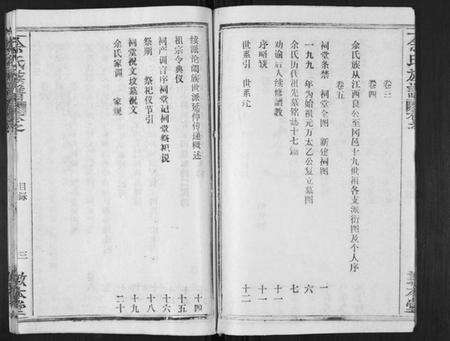 卷三
余氏族从江西良公至冈邑十九世祖各支派衍图及个人序
卷四
卷五
祠堂条禁 祠堂全图 新建祠图 一
一九九 年为始祖元方太乙公复立墓图 六
余氏历代祖先墓铭志十七篇 七
劝谕后人续修谱教 十一
序赐颂 十一
世系引 世系元 十二
绥派论阅族世派延伸传递概述 十四
祖宗令典仪 十五
祠产调言序祠堂记祠堂祭祀说 十六
祭期 祭祀仪节引 十八
祠堂祝文坟墓祝文 十九
余氏家训 家规 二十
余氏族谱
目录
三
敦本堂